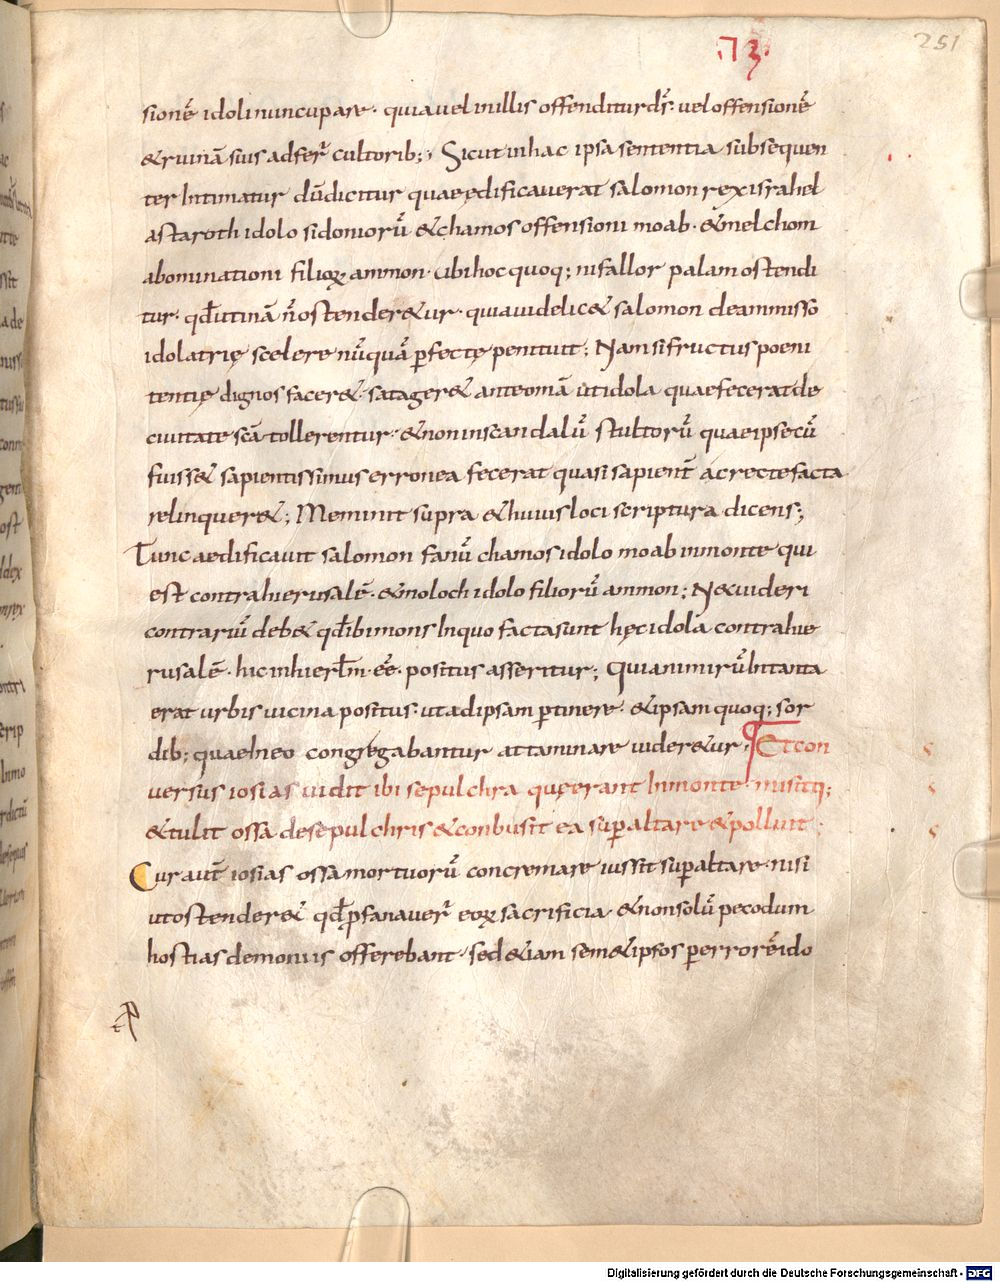 251
sionē idoli nuncupare · quia uel in illis offenditur d̄s · uel offensionē
& ruinā suis adfer̄ cultorib; · Sicut in hac ipsa sententia subsequen
ter Intimatur dū dicitur quae ędificauerat salomon rex israhel
astaroth idolo sidoniorū & chamos offensioni moab · & melchom
abominationi filioꝝ ammon · Ubi hoc quoq; ni fallor palam ostendi
tur · qđ utinā n̄ ostender&ur · quia uidelic& salomon de ammisso
idolatrię scelere nūquā ꝑfectę penituit; Nam si fructus poeni
tentię dignos facer& · satager& ante omā ut idola quae fecerat de
ciuitate scā tollerentur · & non in scandalū stultorū quae ipse cū
fuiss& sapientissimus erronea fecerat quasi sapient̄ ac recte facta
relinquer&; Meminit supra & huius loci scriptura dicens;
Tunc aedificauit salomon fanū chamos idolo moab in monte qui
est contra hierusalē · & moloch idolo filiorū ammon; N& uideri
contrariū deb& qđ ibi mons In quo facta sunt hęc idola contra hie
rusalē · hic in hierłm · eē · positus asseritur; Quia nimirū In tanta
erat urbis uicina positus · ut ad ipsam ꝑtinere · & ipsam quoq; sor
dib; quae In eo congregabantur attaminare uider&ur · Et con
uersus iosias uidit ibi sepulchra quę erant In monte · misitq;
& tulit ossa de sepulchris & conbusit ea suꝑ altare & polluit;
Cur aut̄ iosias ossa mortuorū concremare iussit suꝑ altare · nisi
ut ostender& qđ ꝓfanauer̄ eoꝝ sacrificia · & non solū pecodum
hostias demoniis offerebant · sed &iam sem&ipsos per errorē ido
Digitalisierung gefördert durch die Deutsche Forschungsgemeinschaft - DFG